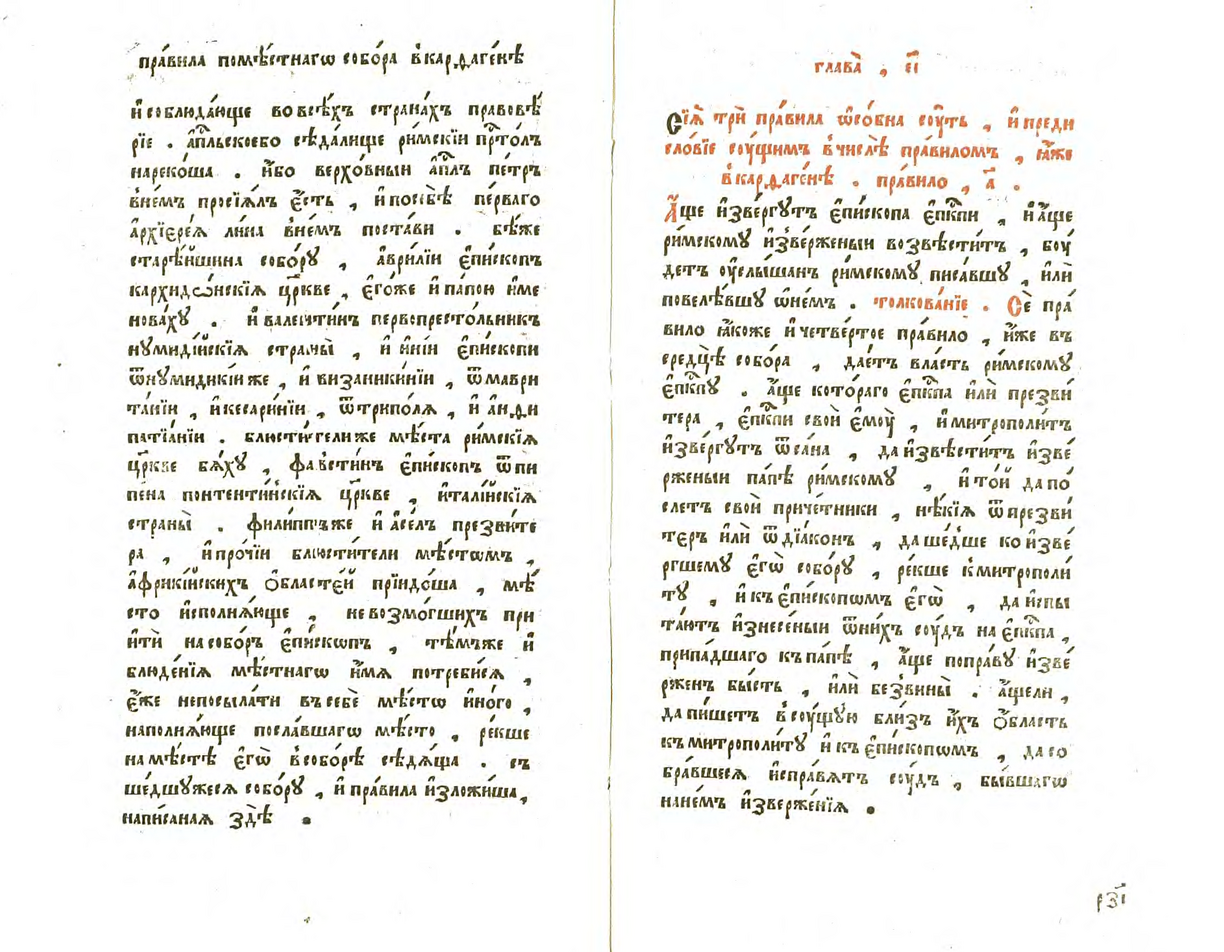 пра́вила помѣ́стнагѡ собо́ра в҆карѳаге́нѣ
и҆соблюда́юще вовсѣ́хъ страна́хъ правовѣ́
рїе . а҆пⷭ҇льскоебо сѣда́лище ри́мскїи прⷭ҇то́лъ
нареко́ша . и҆́бо верхо́вныи а҆пⷭ҇лъ пе́тръ
в҆не́мъ просїѧ́лъ є҆́сть , и҆посебѣ̀ пе́рваго
а҆рхїєре́ѧ ли́на в҆не́мъ поста́ви . бѣ́же
старѣ́йшина собо́рꙋ , а҆врилі́и є҆пи́скопъ
кархидѡ́нскїѧ цр҃кве , є҆го́же и҆ па́пою и҆ме
нова́хꙋ . и҆ валенти́нъ первопресто́льникъ
нꙋмиді́йскїѧ страны̀ , и҆ и҆ні́и є҆пи́скопи
ѿнꙋмидикі́и же , и҆ византикині́и , ѿмаври
та́нїи , и҆кесарині́и , ѿтри́полѧ , и҆ а҆нѳи
патіа́нїи . блюсти́телиже мѣ́ста ри́мскїѧ
цр҃кве бѧ́хꙋ , фаѵсти́нъ є҆пи́скопъ ѿпи
пе́на понтенти́нскїѧ цр҃кве , и҆талі́йскїѧ
страны̀ . фили́ппъже и҆ а҆се́лъ презви́те
ра , и҆про́чїи блюсти́тели мѣ́стѡмъ ,
а҆фрикі́йскихъ ѻ҆бласте́й прїидо́ша , мѣ́
сто и҆сполнѧ́юще , невозмо́гшихъ при
итѝ насобо́ръ є҆пи́скѡпъ , тѣ́мъже и҆
блюде́нїѧ мѣ́стнагѡ и҆́мѧ потреби́сѧ ,
є҆́же непосыла́ти въсебѐ мѣ́стѡ и҆но́го ,
наполнѧ́юще посла́вшагѡ мѣ́сто , ре́кше
намѣ́стѣ є҆гѡ̀ в҆собо́рѣ сѣдѧ́ща . съ
ше́дшꙋжесѧ собо́рꙋ , и҆ пра́вила и҆зложи́ша ,
напи́санаѧ здѣ̀ .
глава̀ , є҃і
Сїѧ̀ трѝ пра́вила ѡ҆со́бна сꙋ́ть , и҆ преди
сло́вїе сꙋ́щимъ в҆числѣ̀ пра́виломъ , ꙗ҆́же
в҆карѳаге́нѣ . пра́вило , а҃ .
А҆́ще и҆зве́ргꙋтъ є҆пи́скопа є҆пⷭ҇кпи , и҆ а҆́ще
ри́мскомꙋ и҆зве́рженыи возвѣсти́тъ , бꙋ́
детъ ᲂу҆слы́шанъ ри́мскомꙋ писа́вшꙋ , и҆лѝ
повелѣ́вшꙋ ѡ҆не́мъ . толкова́нїе . Сѐ пра́
вило ꙗ҆́коже и҆ четве́ртое пра́вило , и҆́же въ
среди́цѣ собо́ра , дае́тъ вла́сть ри́мскомꙋ
є҆пⷭ҇кпꙋ . а҆́ще кото́раго є҆пⷭ҇кпа и҆лѝ презви́
тера , є҆пⷭ҇кпи свои̑ є҆мꙋ̀ , и҆митрополи́тъ
и҆зве́ргꙋтъ ѿса́на , даи҆звѣсти́тъ и҆зве́
рженыи па́пѣ ри́мскомꙋ , и҆ то́й да по́
слетъ своѝ приче́тники , нѣ́кїѧ ѿпрезви́
теръ и҆лѝ ѿдїа́конъ , даше́дше кои҆зве́
ргшемꙋ є҆гѡ̀ собо́рꙋ , ре́кше к҆митрополи́
тꙋ , и҆ къє҆пи́скопѡмъ є҆гѡ̀ , даи҆спы
та́ютъ и҆знесе́ныи ѿни́хъ сꙋ́дъ на є҆пⷭ҇кпа ,
припа́дшаго къпа́пѣ , а҆́ще попра́вꙋ и҆зве́
рженъ бы́сть , и҆лѝ безвины̀ . а҆́щели ,
дапи́шетъ в҆сꙋ́щꙋю бли́зъ и҆́хъ ѻ҆́бласть
къмитрополи́тꙋ и҆ къє҆пи́скопѡмъ , дасо
бра́вшеесѧ и҆спра́вѧтъ сꙋ́дъ , бы́вшагѡ
нане́мъ и҆зверже́нїѧ .
рз҃і